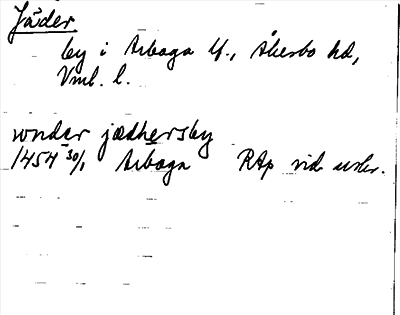 Jäder
by i Arboga lf., Åkerbo hd,
Vml. l.
wnder jædhersby
1454 30/1 Arboga RAp vid under.